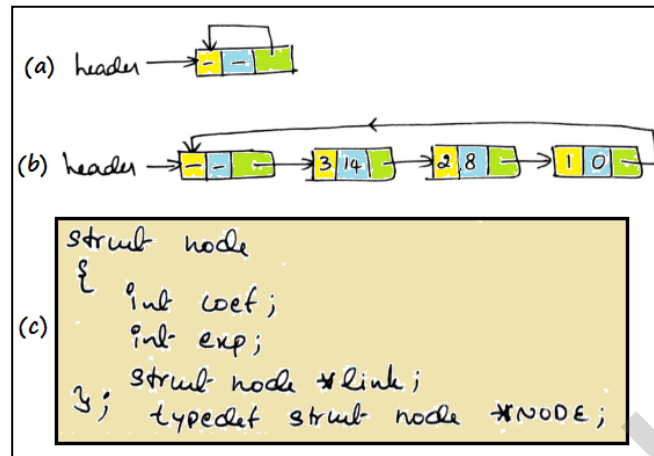 (a) header - -
(b) header - - 3 14 2 8 1 0
(c)
struct node
{
int coef;
int exp;
struct node *link;
}; typedef struct node *NODE;